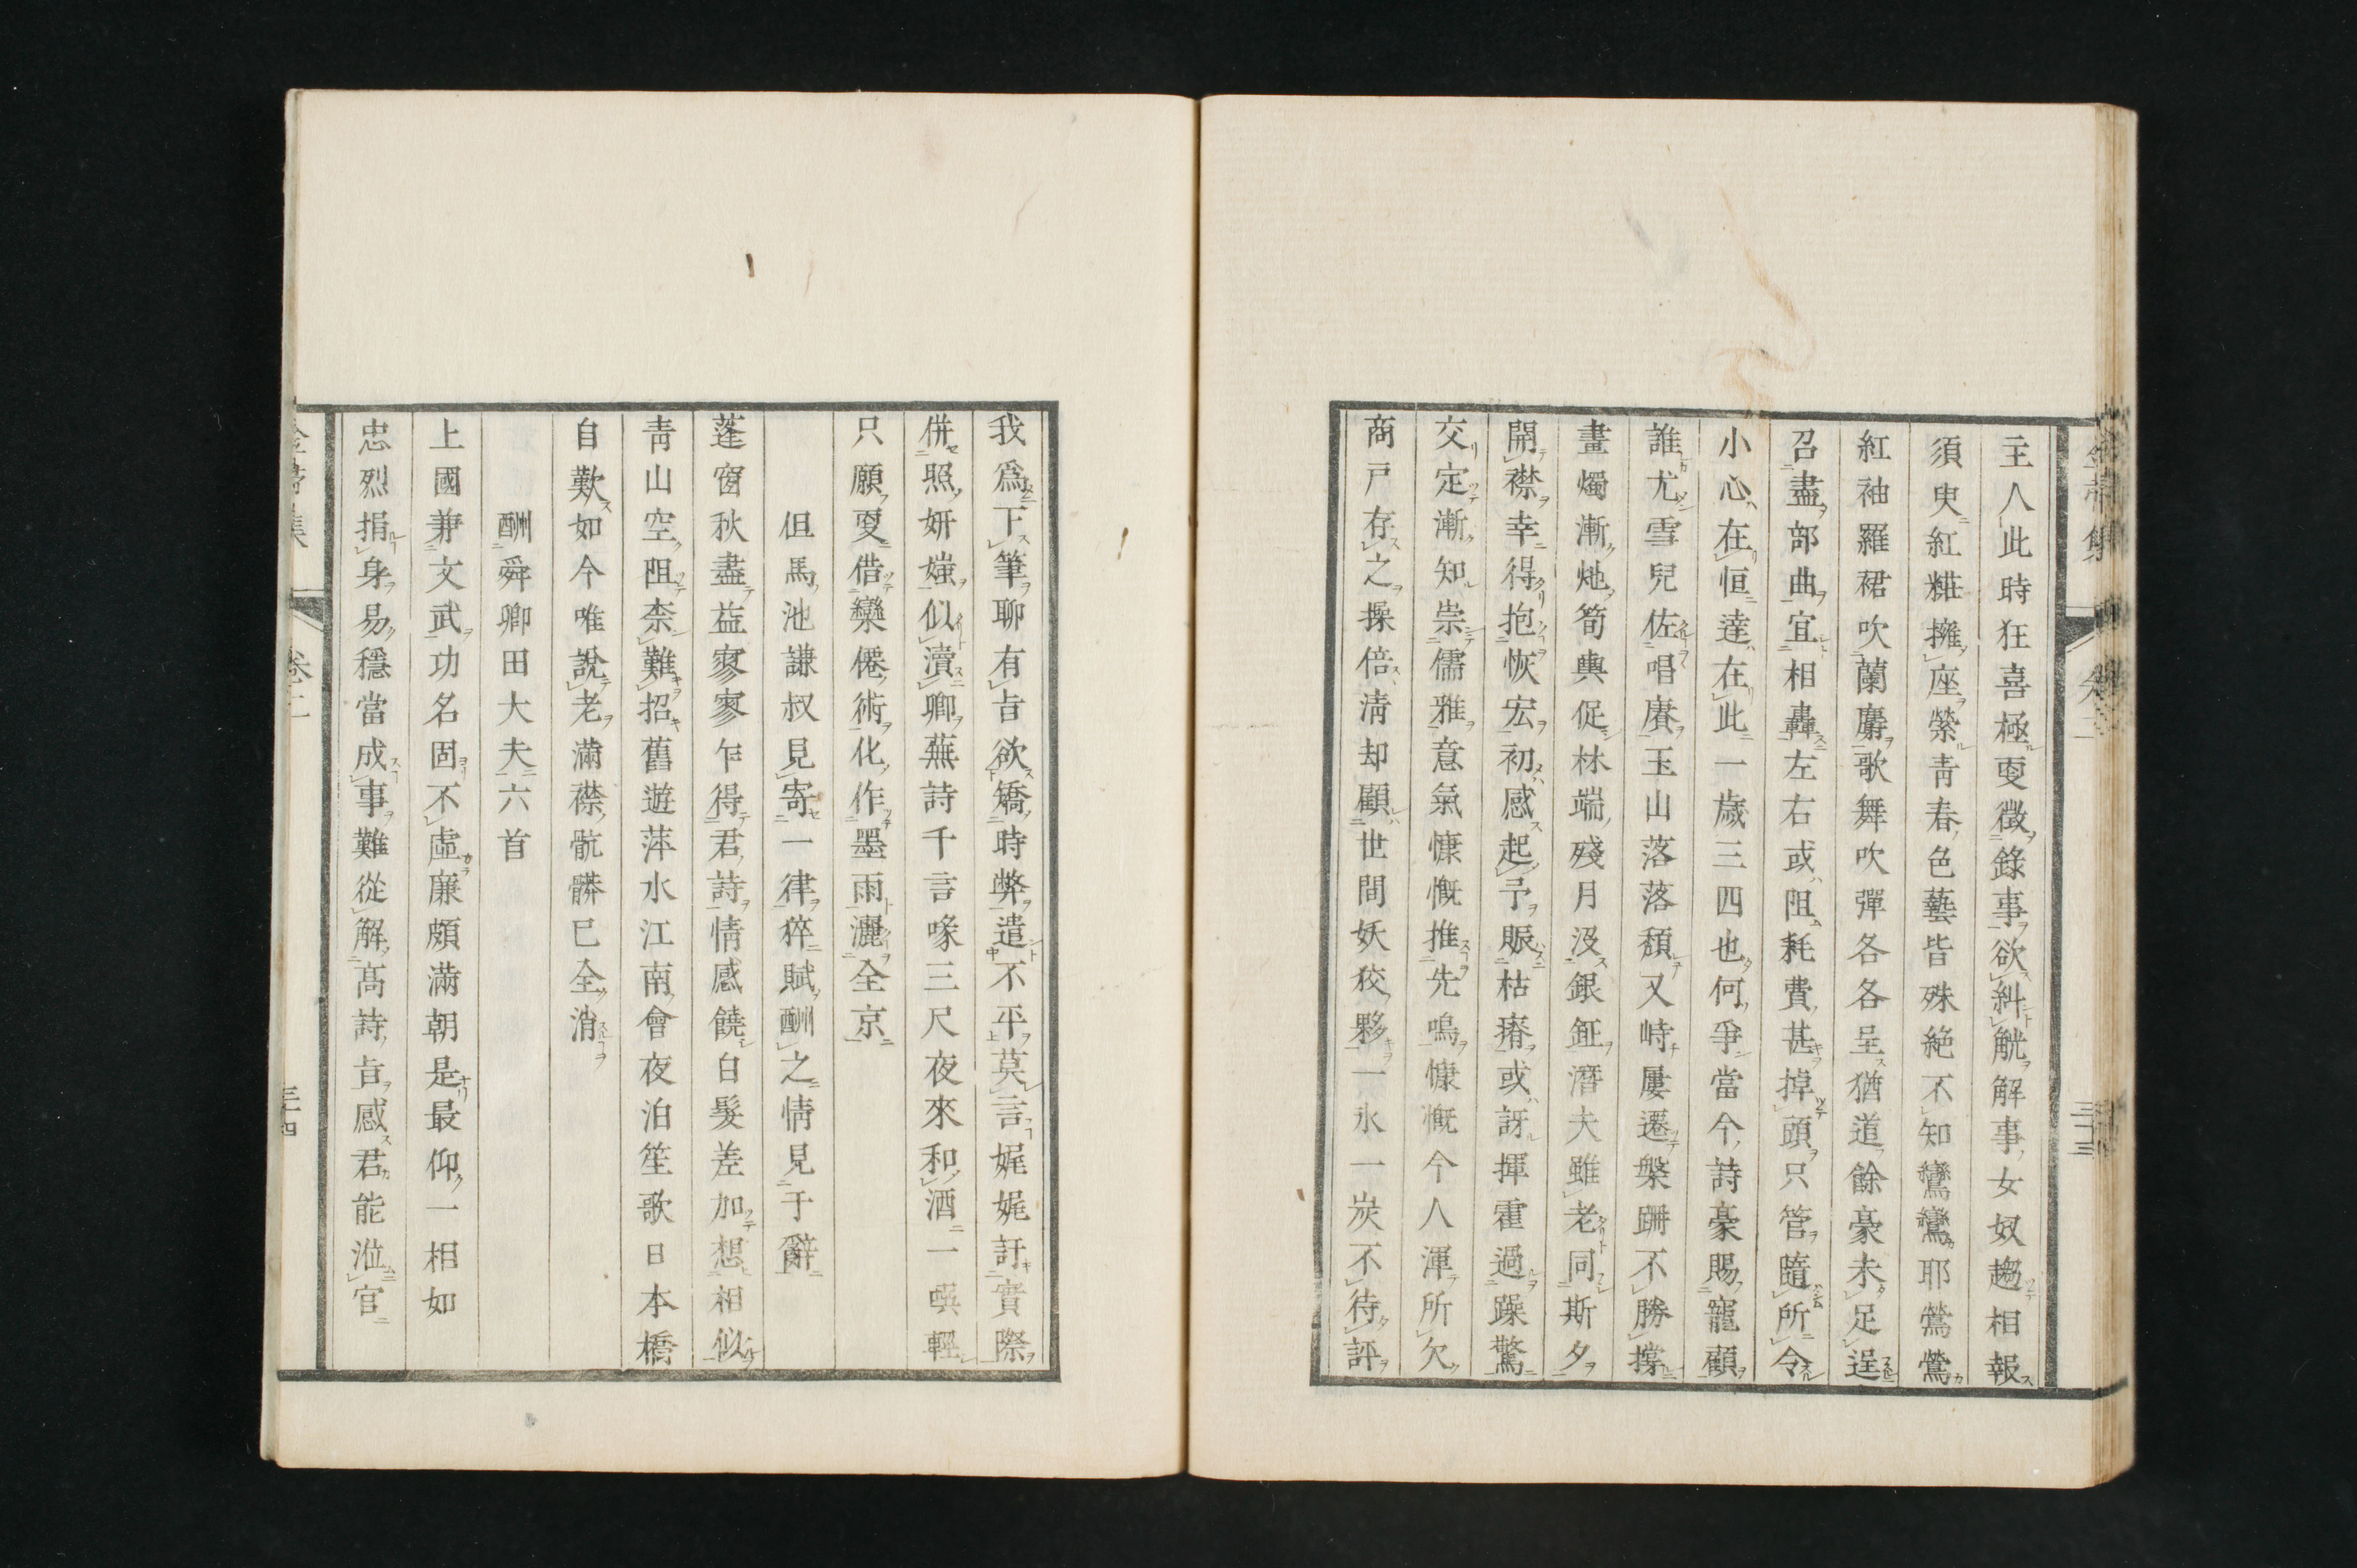 主人此時狂喜極更徵錄事欲糾觥解事女奴趨相報
須臾紅糚擁座縈青春色藝皆殊絶不知鸞鸞耶鶯鶯
紅袖羅裙吹蘭麝歌舞吹彈各各呈猶道餘豪未足逞
召盡部曲宜相轟左右或阻耗費甚掉頭只管隨所令
小心在恒達在此一歲三四也何爭當今詩豪賜寵顧
誰尤雪兒佐唱賡玉山落落頽又峙屢遷槃跚不勝撐
畫燭漸灺筍輿促林端殘月汲銀缸潛夫雖老同斯夕
開襟幸得抱恢宏初感起予賑枯瘠或訝揮霍過躁驚
交定漸知崇儒雅意氣慷慨推先鳴慷慨今人渾所欠
商戸存之操倍清却顧世間妖狡夥一氷一炭不待評
我爲下筆聊有旨欲矯時弊遣不平莫言娓娓訏實際
併照妍媸似瀆卿蕪詩千言喙三尺夜來和酒一嘆輕
只願更借欒僊術化作墨雨灑全京
但馬池謙叔見寄一律猝賦酬之情見于辭
蓬窗秋盡益寥寥乍得君詩情感饒白髮差加想相似
靑山空阻柰難招舊遊萍水江南會夜泊笙歌日本橋
自歎如今唯說老滿襟骯髒已全消
酬舜卿田大夫六首
上國兼文武功名固不虛廉頗滿朝是最仰一相如
忠烈捐身易穩當成事難從解高詩旨感君能涖官
卷二
三十三